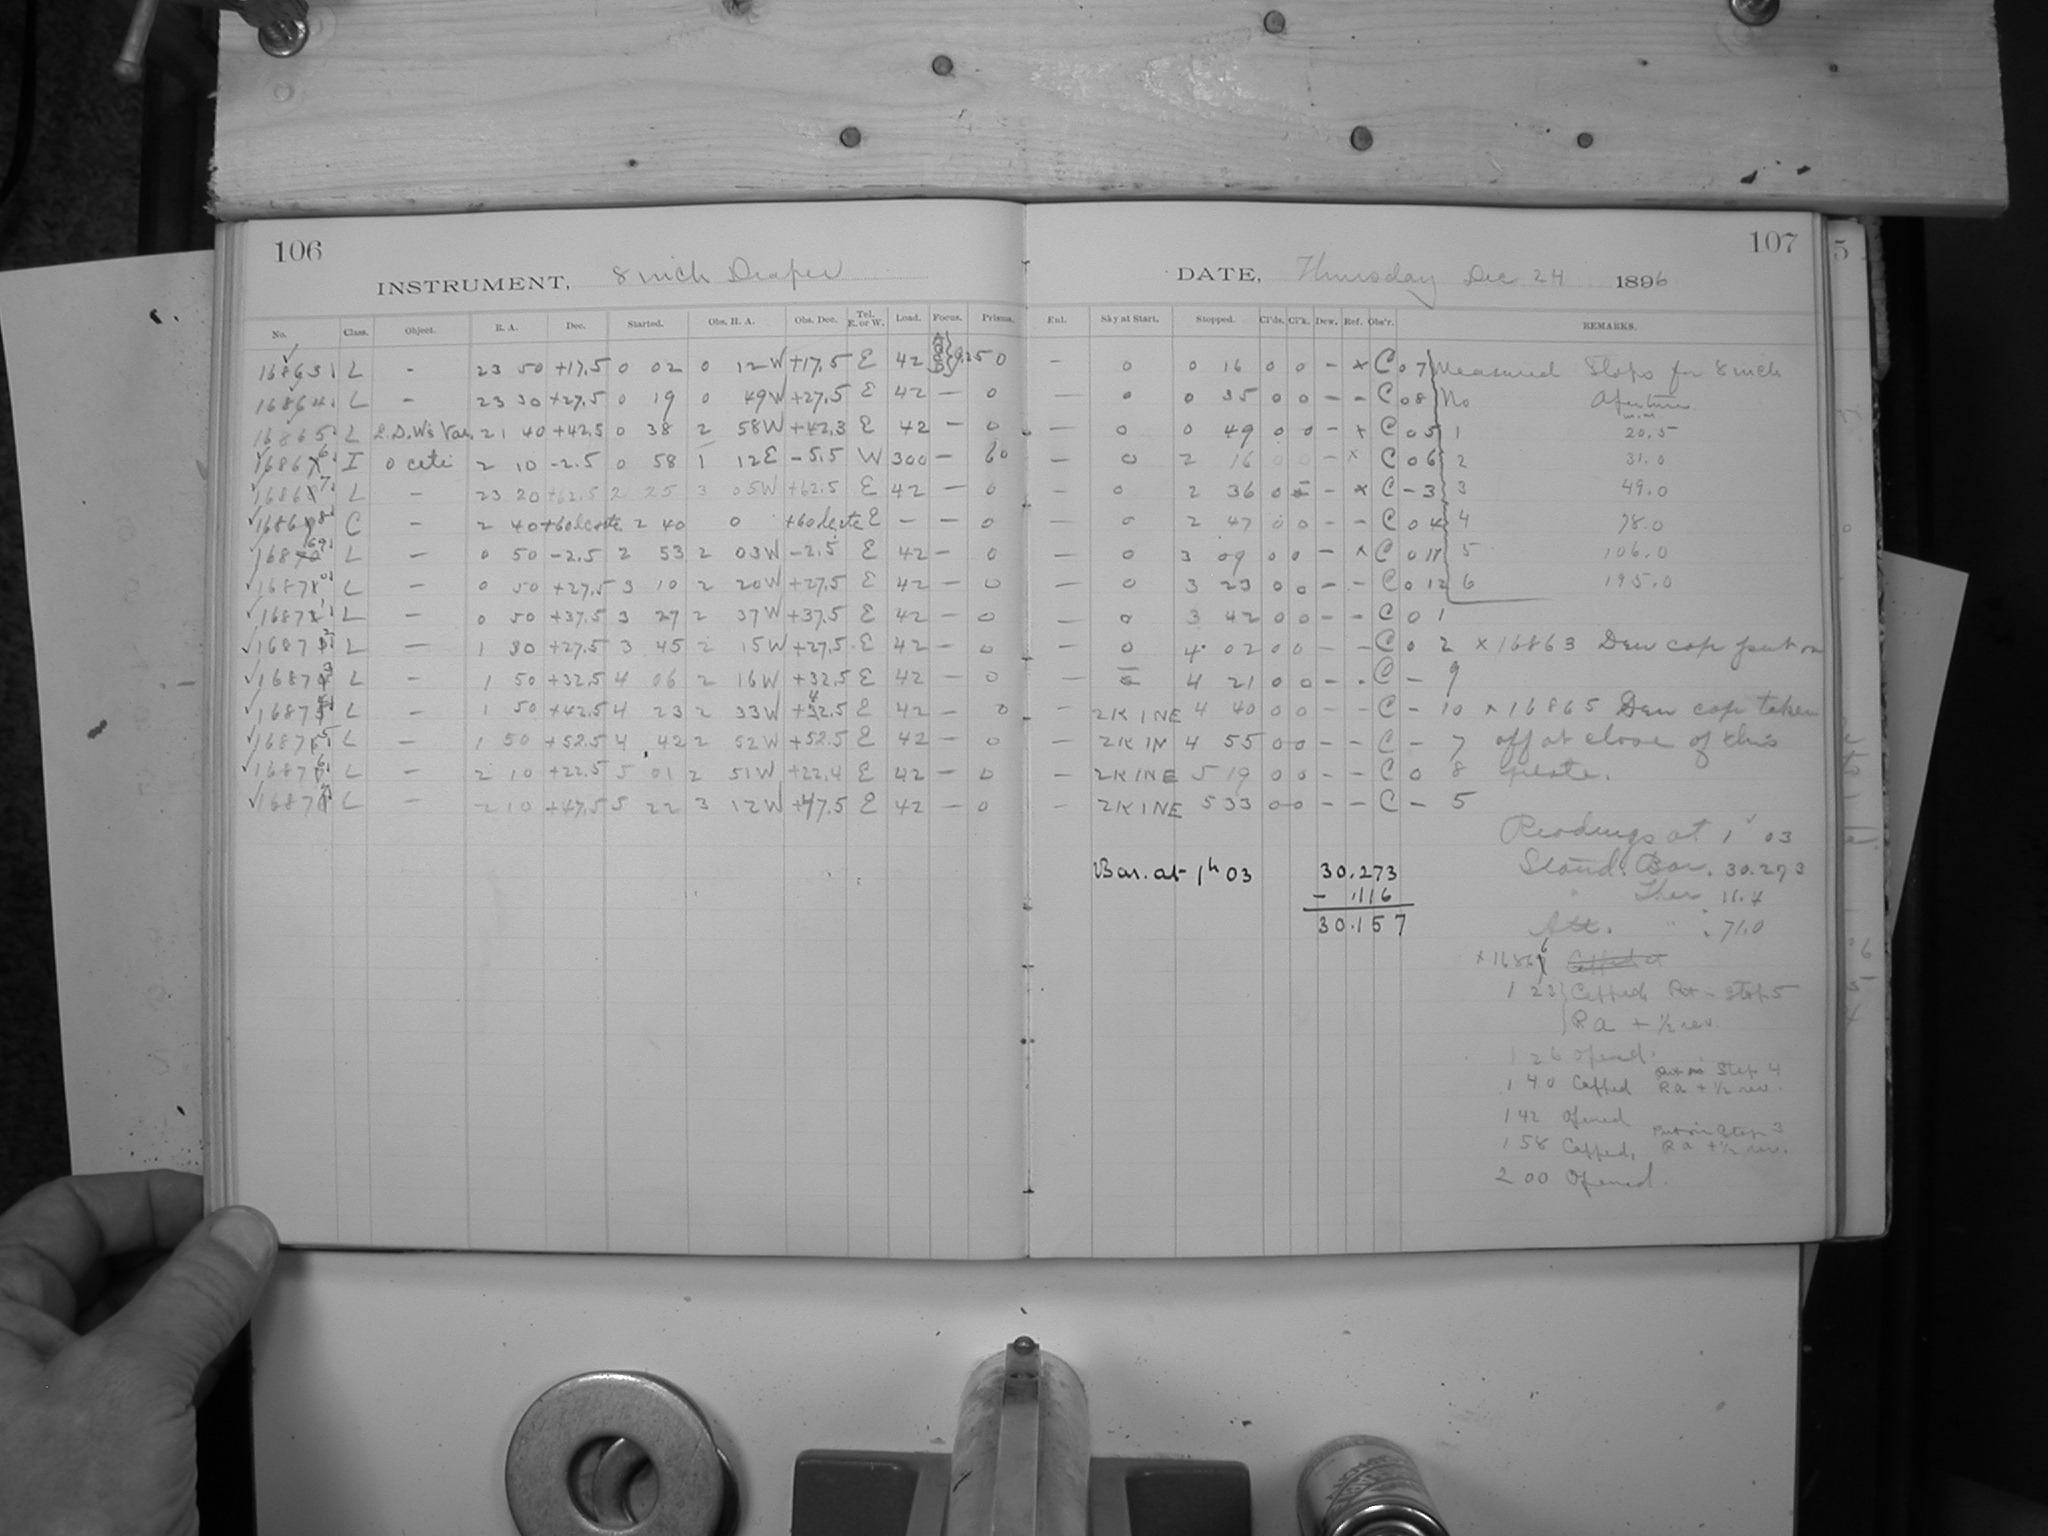 106
107
5
INSTRUMENT, 8 inch Draper
DATE, Thursday Dec 24 1896
No. Class. Object. R. A. Dec. Started. Obs. H. A. Obs. Dec. Tel. E. or W. Load. Focus. Prisms. Ext. Sky at Start. Stopped. Cl'ds. Cl'k. Dew. Ref. Obs'r. REMARKS.
16863 L - 23 50 +17.5 0 02 0 12W +17.5 E 42 0 - 0 0 16 0 0 - x C 0 7 Measured Stops for 8 inch
16864 L - 23 30 +27.5 0 19 0 49W +27.5 E 42 - 0 - 0 0 35 0 0 - - C 0 8 No Aperture m.m.
16865 L 2 1 40 +42.5 0 38 2 58W +42.3 E 42 - 0 - 0 0 49 0 0 - x C 0 5 1 20.5
16866 I o ceti 2 10 -2.5 0 58 1 12E -5.5 W 300 - 60 - 0 2 16 0 0 - x C 0 6 2 31.0
16867 L - 23 20 +62.5 2 25 3 05W +62.5 E 42 - 0 - 0 2 36 0 - x C - 3 3 49.0
16868 C - 2 40 +60 2 40 0 +60 E - - 0 - 0 2 47 0 0 - - C 0 4 4 78.0
16869 L - 0 50 -2.5 2 53 2 03W -2.5 E 42 - 0 - 0 3 09 0 0 - x C 0 11 5 106.0
16870 L - 0 50 +27.5 3 10 2 20W +27.5 E 42 - 0 - 0 3 23 0 0 - - C 0 12 6 195.0
16871 L - 0 50 +37.5 3 27 2 37W +37.5 E 42 - 0 - 0 3 42 0 0 - - C 0 1
16872 L - 1 30 +27.5 3 45 2 15W +27.5 E 42 - 0 - 0 4 02 0 0 - - C 0 2 x 16863 Dew cap put on
16873 L - 1 50 +32.5 4 06 2 16W +32.5 E 42 - 0 - 4 21 0 0 - - C - 9
16874 L - 1 50 +42.5 4 23 2 33W +42.5 E 42 - 0 - 2K1NE 4 40 0 0 - - C - 10 x 16865 Dew cap taken
16875 L - 1 50 +52.5 4 42 2 52W +52.5 E 42 - 0 - 2K1N 4 55 0 0 - - C - 7 off at close of this
16876 L - 2 10 +22.5 5 01 2 51W +22.4 E 42 - 0 - 2K1NE 5 19 0 0 - - C 0 8 plate.
16877 L - 2 10 +47.5 5 22 3 12W +47.5 E 42 - 0 - 2K1NE 5 33 0 0 - - C - 5
Readings at 1 03
Bar. at 1h 03 30.273
Stand. Bar. 30.273
- .116
" Ther 11.4
30.157
Att. " " 71.0
x 16866
1 23 Capped Put in Stop 5
R a + ½ rev.
1 26 Opened.
1 40 Capped Put in Stop 4
R a + ½ rev.
1 42 Opened
1 58 Capped, Put in Stop 3
R a + ½ rev.
2 00 Opened.